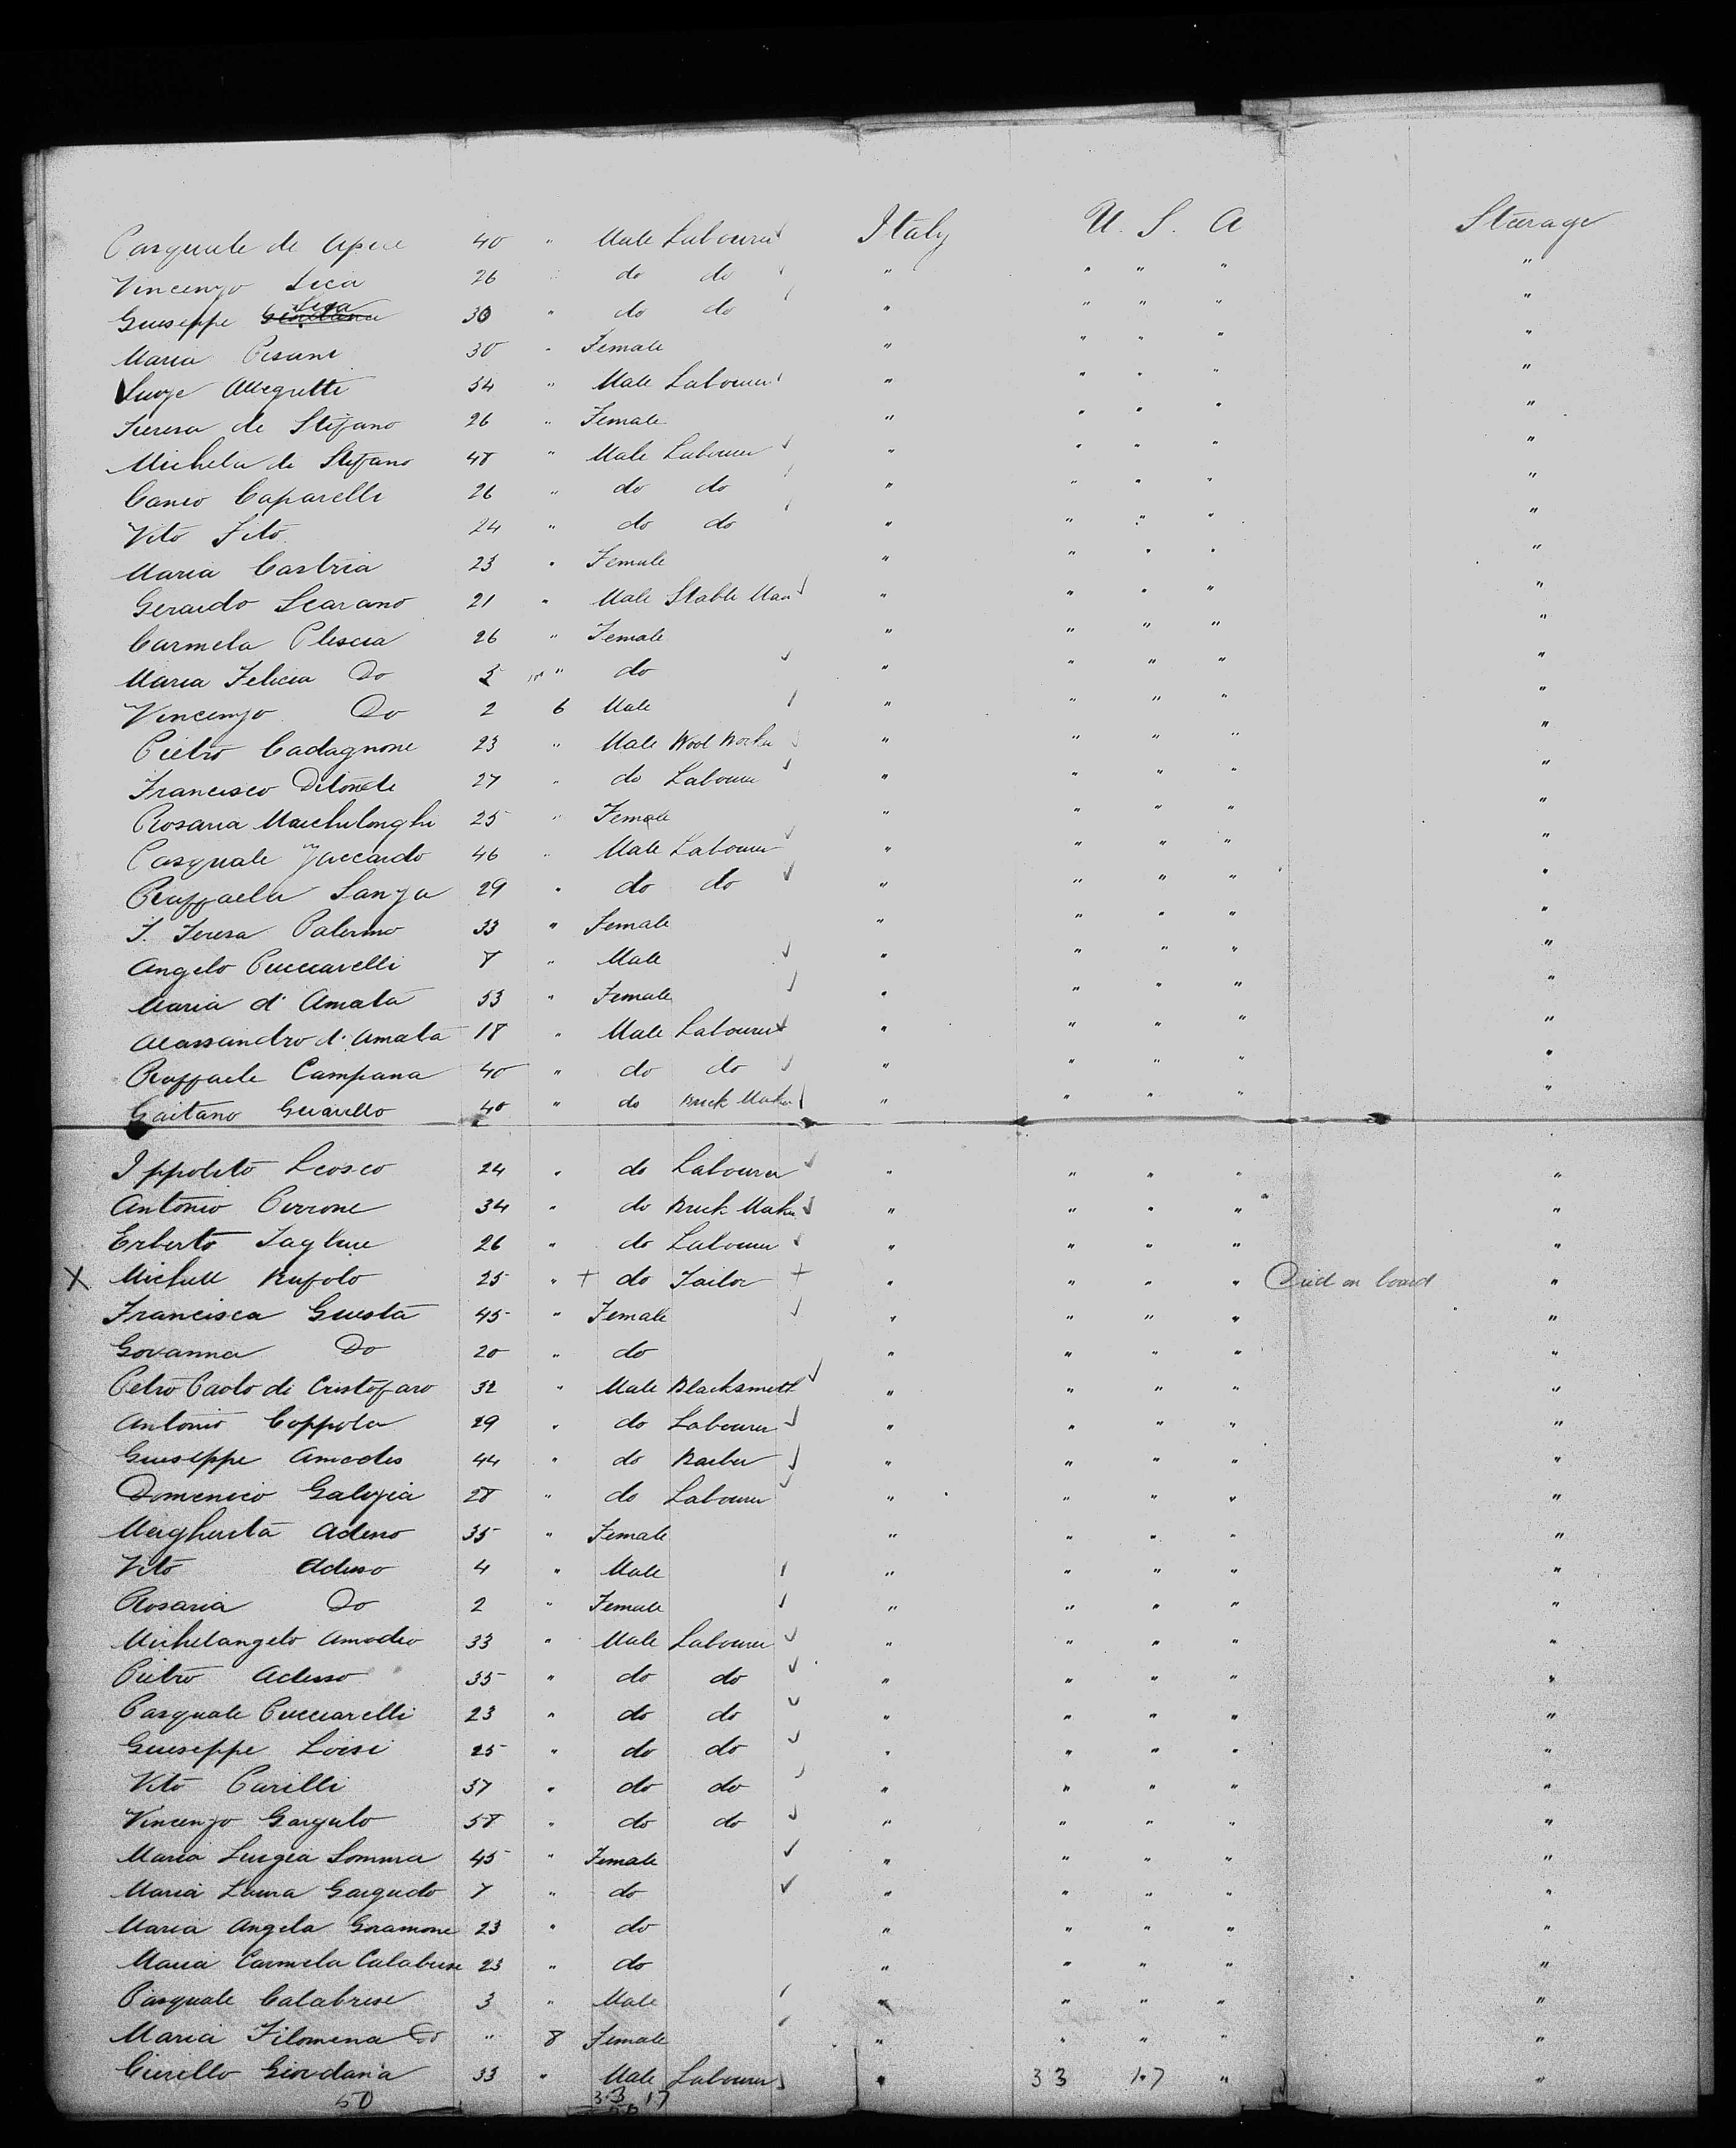 Pasquale de Apice 40 " Male Labourer Italy U. S. A Steerage
Vincenzo Sica 26 " do do " " " " "
Giuseppe Sica 30 " do do " " " " "
Maria Pisani 30 " Female " " " " "
Luige Allegretti 54 " Male Labourer " " " " "
Teresa de Stefano 26 " Female " " " " "
Michela de Stefano 48 " Male Labourer " " " " "
Canio Caparelli 26 " do do " " " " "
Vito Fito 24 " do do " " " " "
Maria Castria 23 " Female " " " " "
Gerardo Scarano 21 " Male Stable Man " " " " "
Carmela Plescia 26 " Female " " " " "
Maria Felicia Do 5 " do " " " " "
Vincenzo Do 2 6 Male " " " " "
Pietro Cadagnone 23 " Male Wool Worker " " " " "
Francesco 27 " do Labourer " " " " "
Rosaria Marchilonghi 25 " Female " " " " "
Pasquale Jaccardo 46 " Male Labourer " " " " "
Raffaela Sanza 29 " do do " " " " "
T. Teresa Palermo 33 " Female " " " " "
Angelo Pucciarelli 8 " Male " " " " "
Maria d' Amata 53 " Female " " " " "
Alassandro d' Amata 18 " Male Labourer " " " " "
Raffaele Campana 40 " do do " " " " "
Gaitano 40 " do Brick Maker " " " " "
Ippolito Leosco 24 " do Labourer " " " " "
Antonio Perrone 34 " do Brick Maker " " " " "
Erberto 26 " do Labourer " " " " "
X Michele Rufolo 25 " + do Tailor + " " " " Died on board "
Francisca Giusta 45 " Female " " " " "
Govanna Do 20 " do " " " " "
Petro Paolo di Cristofaro 32 " Male Blacksmith " " " " "
Antonio Coppola 29 " do Labourer " " " " "
Giuseppe Amodio 44 " do Barber " " " " "
Domenico Galizia 28 " do Labourer " " " " "
Margherita Adeso 35 " Female " " " " "
Vito Adeso 4 " Male " " " " "
Rosaria Do 2 " Female " " " " "
Michelangelo Amodio 33 " Male Labourer " " " " "
Pietro Adesso 35 " do do " " " " "
Pasquale Pucciarelli 23 " do do " " " " "
Giuseppe Loisi 25 " do do " " " " "
Vito Parilli 37 " do do " " " " "
Vincenzo Gargulo 58 " do do " " " " "
Maria Luigia Somma 45 " Female " " " " "
Maria Laura Gargulo 7 " do " " " " "
Maria Angela Gramone 23 " do " " " " "
Maria Carmela Calabrese 23 " do " " " " "
Pasquale Calabrese 3 " Male " " " " "
Maria Filomena Do " 8 Female " " " " "
Cirello Giordana 33 " Male Labourer " 33 17 " "
50 33 17
50